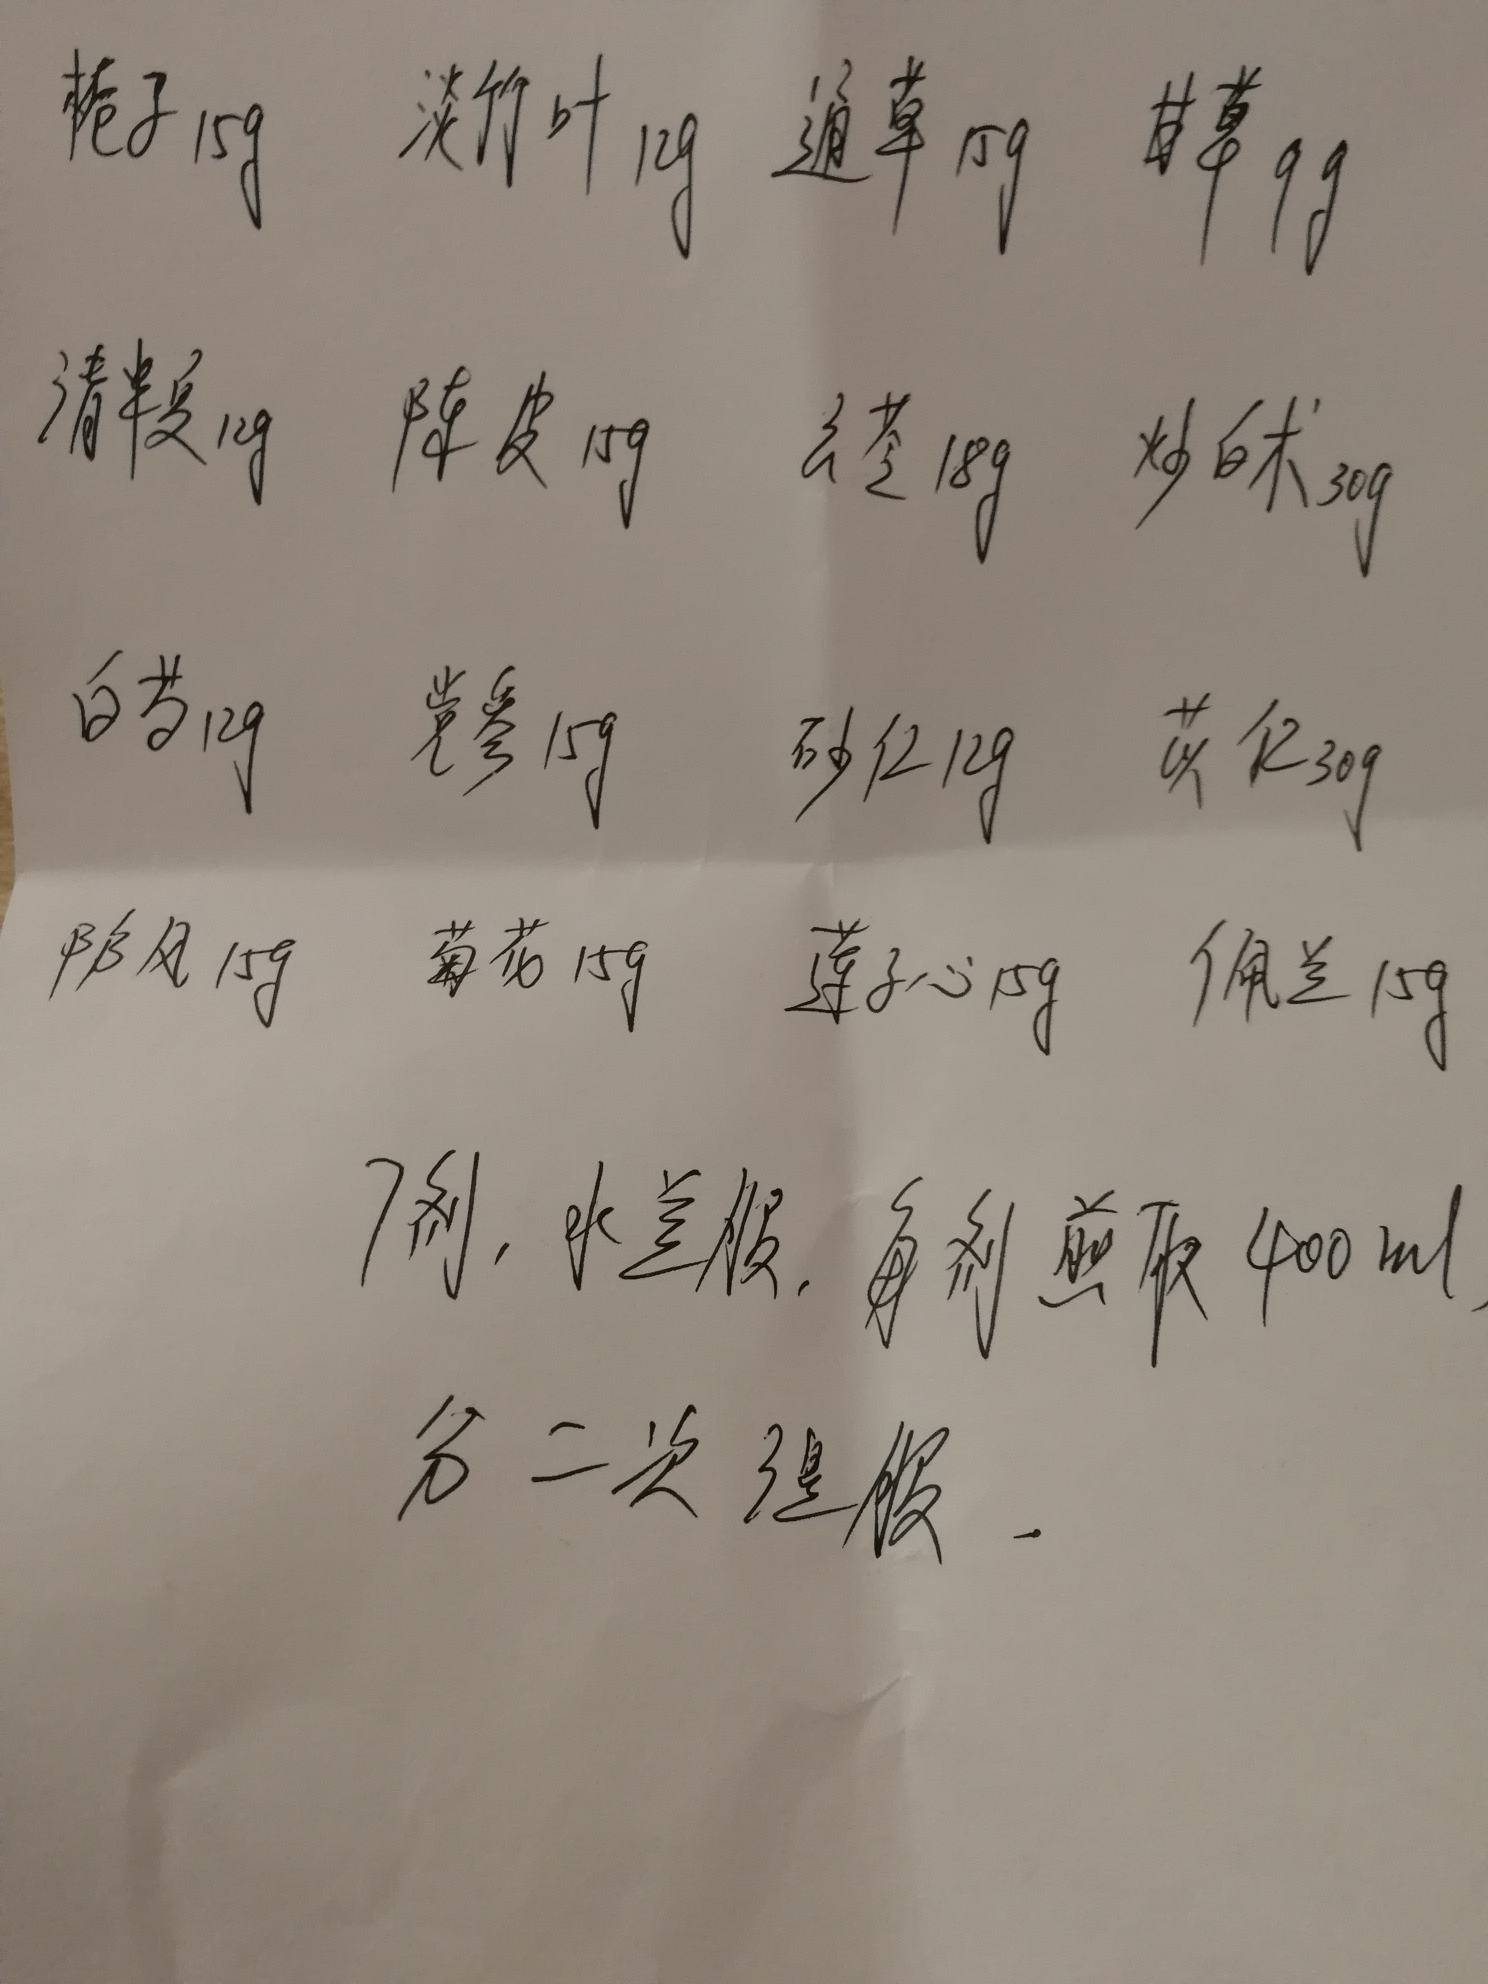 栀子15g 淡竹叶12g 通草15g 甘草9g
清半夏12g 陈皮15g 云苓18g 炒白术30g
白芍12g 党参15g 砂仁12g 苡仁30g
防风15g 菊花15g 莲子心15g 佩兰15g
7剂，水煎服，每剂煎取400ml，
分二次温服.